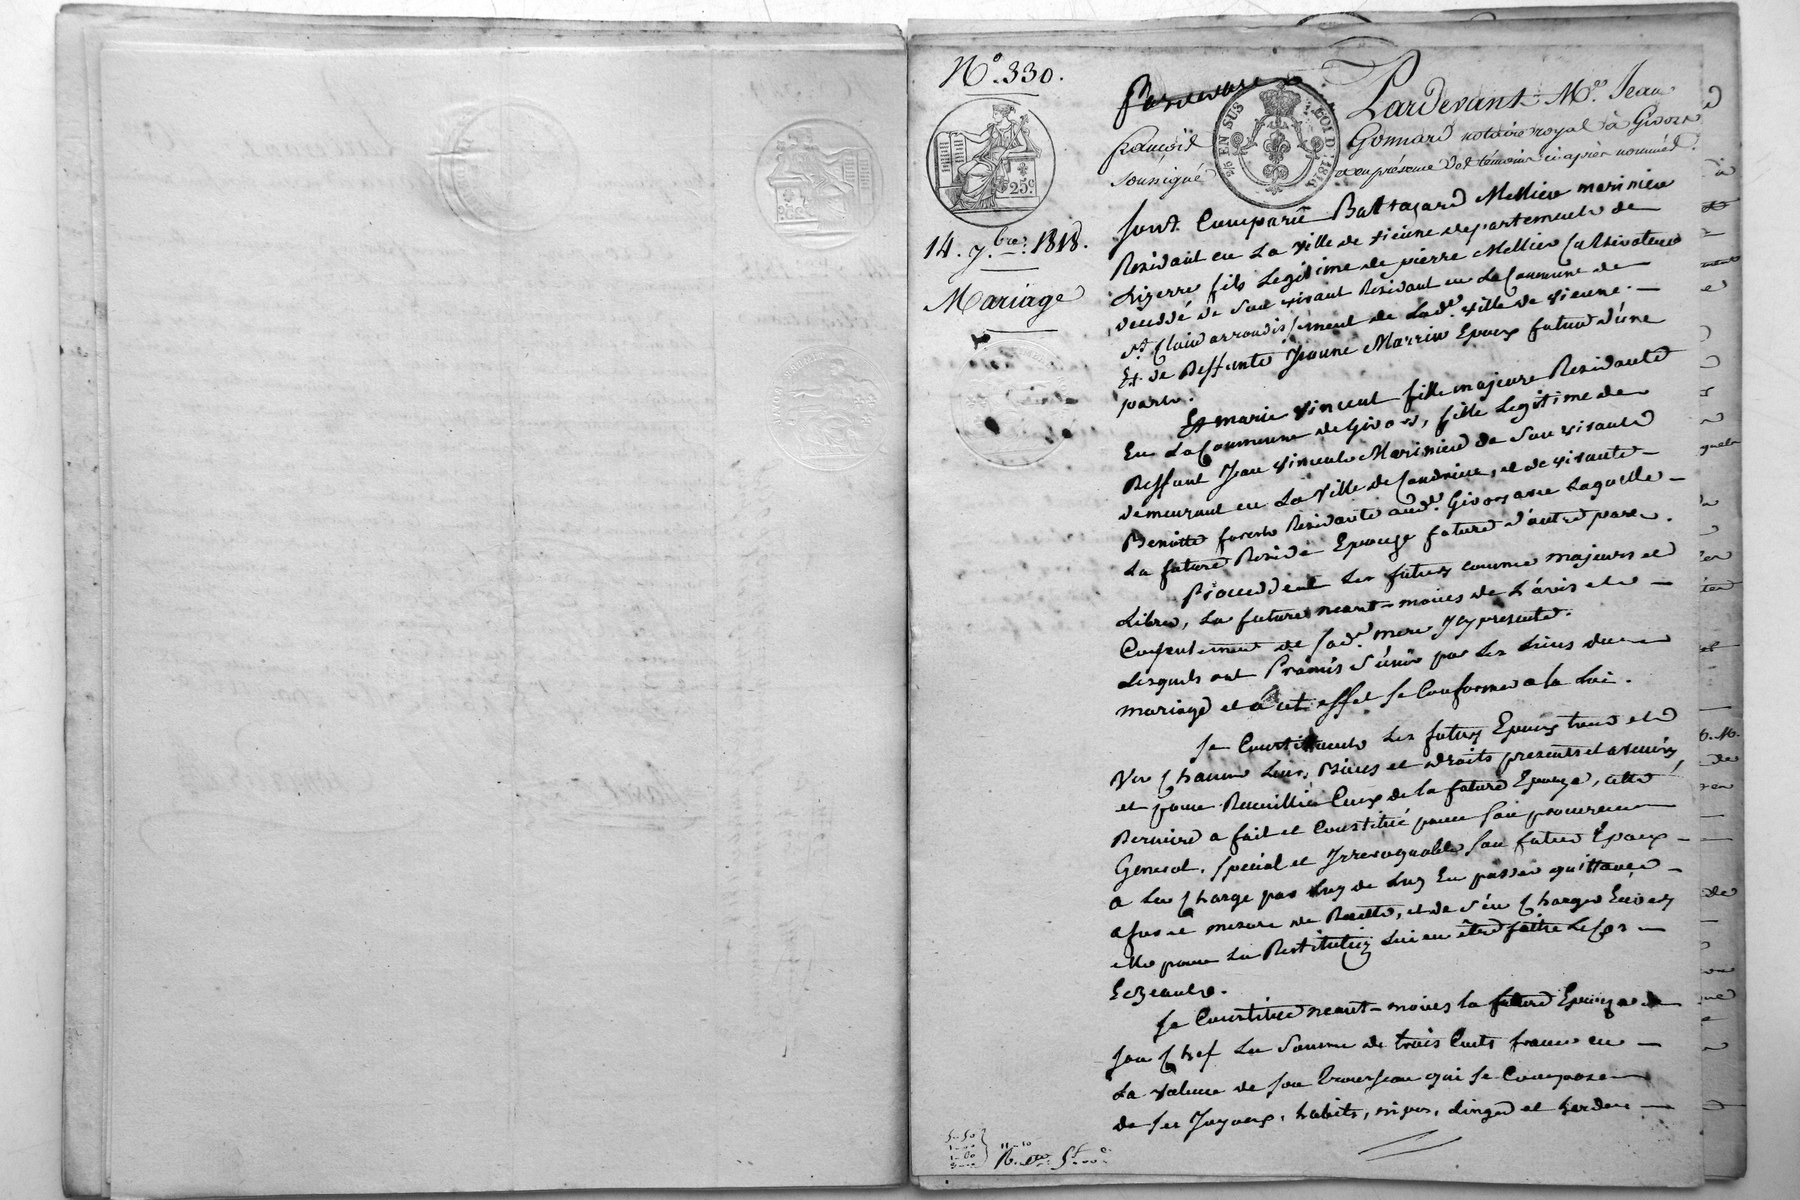 N.o 330.
25c
14. 7.bre 1818.
Mariage
Pardevant
2/5 EN SUS LOI D. 1816
Pardevant M.e Jean
françois Gonnard notaire royal à Givors
soussigné et en présence des témoins ci après nommés
sont Comparûs Baltazard Mellier marinier
Residant en La Ville de vienne departement de
Lizerre fils Legitime de pierre Mellier Cultivateur
decedé de Son vivant Residant en La Commune de
st. Clair arrondissement de Lad.e ville de vienne. —
Et de Deffunte Jeanne Marrin Epoux futur d'une
part.
Et marie vincent fille majeure Residante
En La Commune de Givors, fille Legitime de
Deffunt Jean vincent Marinier de Son vivant
demeurant en La Ville de Condrieu, et de vivante —
Benoitte forest Residante aud.t Givors avec Laquelle —
La future Reside Epouze future d'autre part.
Procedent Les futurs comme majeurs et
Libre, La future neant-moins de L'avis et —
Consentement de Sad.e mere Icy presente.
Lesquels ont Promis S'unir par Les Liens du
mariage et à cet effet se Conformer a la Loi.
Se Constituent Les futurs Epoux tous et
Un Chacun Leurs Biens et droits presents et avenirs
et pour Recueillir Ceux de la future Epouze, cette
Derniere a fait et Constitué pour Son procureur
General, Special et Irrevoquable Son futur Epoux —
a La Charge par Luy de Luy En passer quittance —
a fur et mesure de Recette, et de S'en Charger Envers
elle pour La Restitution Lui en être faitte Le Cas —
Echeant.
Se Constitue neant-moins la future Epouze de
Son Chef La Somme de trois Cents francs en —
La valeur de Son Trousseau qui se Compose
de Ses Joyaux, habits, nipes, Linges et hardes —